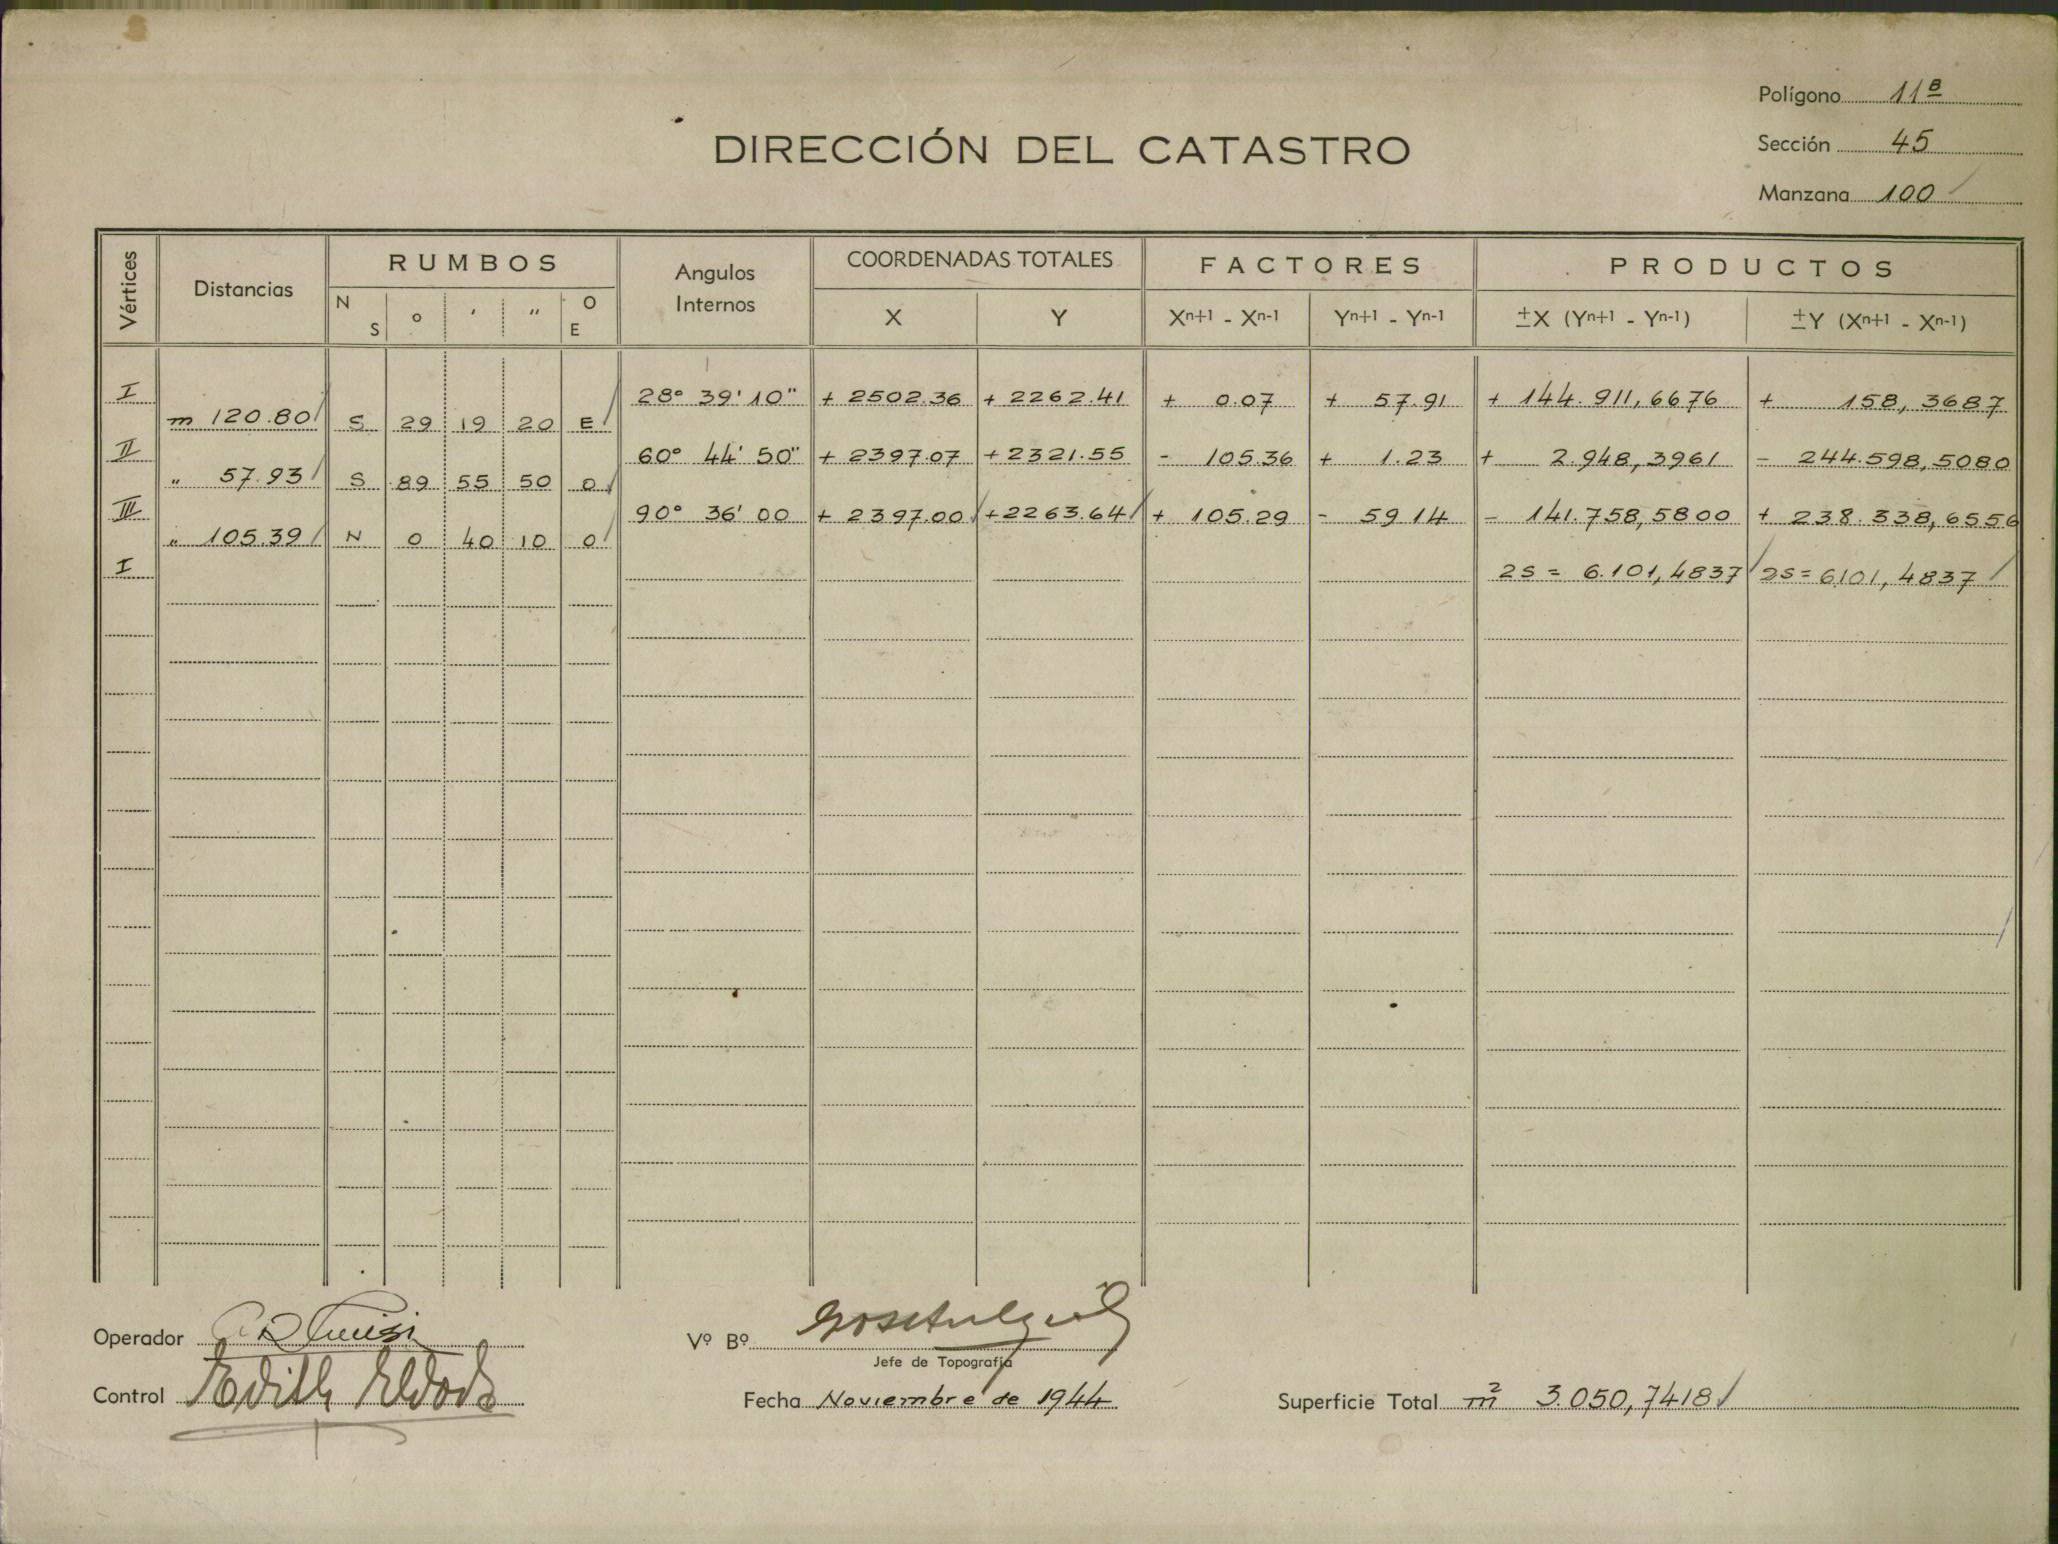 Polígono 11B
DIRECCIÓN DEL CATASTRO
Sección 45
Manzana 100
Vértices Distancias RUMBOS Angulos Internos COORDENADAS TOTALES FACTORES PRODUCTOS
N S o ' " O E X Y Xn+1 - Xn-1 Yn+1 - Yn-1 ±X (Yn+1 - Yn-1) ±Y (Xn+1 - Xn-1)
I 28° 39' 10" + 2502.36 + 2262.41 + 0.07 + 57.91 + 144.911,6676 + 158,3687
m 120.80 S 29 19 20 E
II 60° 44' 50" + 2397.07 + 2321.55 - 105.36 + 1.23 + 2.948,3961 - 244.598,5080
" 57.93 S 89 55 50 O
III 90° 36' 00 + 2397.00 + 2263.64 + 105.29 - 59 14 - 141.758,5800 + 238.338,6556
" 105.39 N 0 40 10 O
I 2S = 6.101,4837 2S = 6101,4837
Operador
Vº Bº
Jefe de Topografía
Control Edith
Fecha Noviembre de 1944
Superficie Total m2 3.050,7418